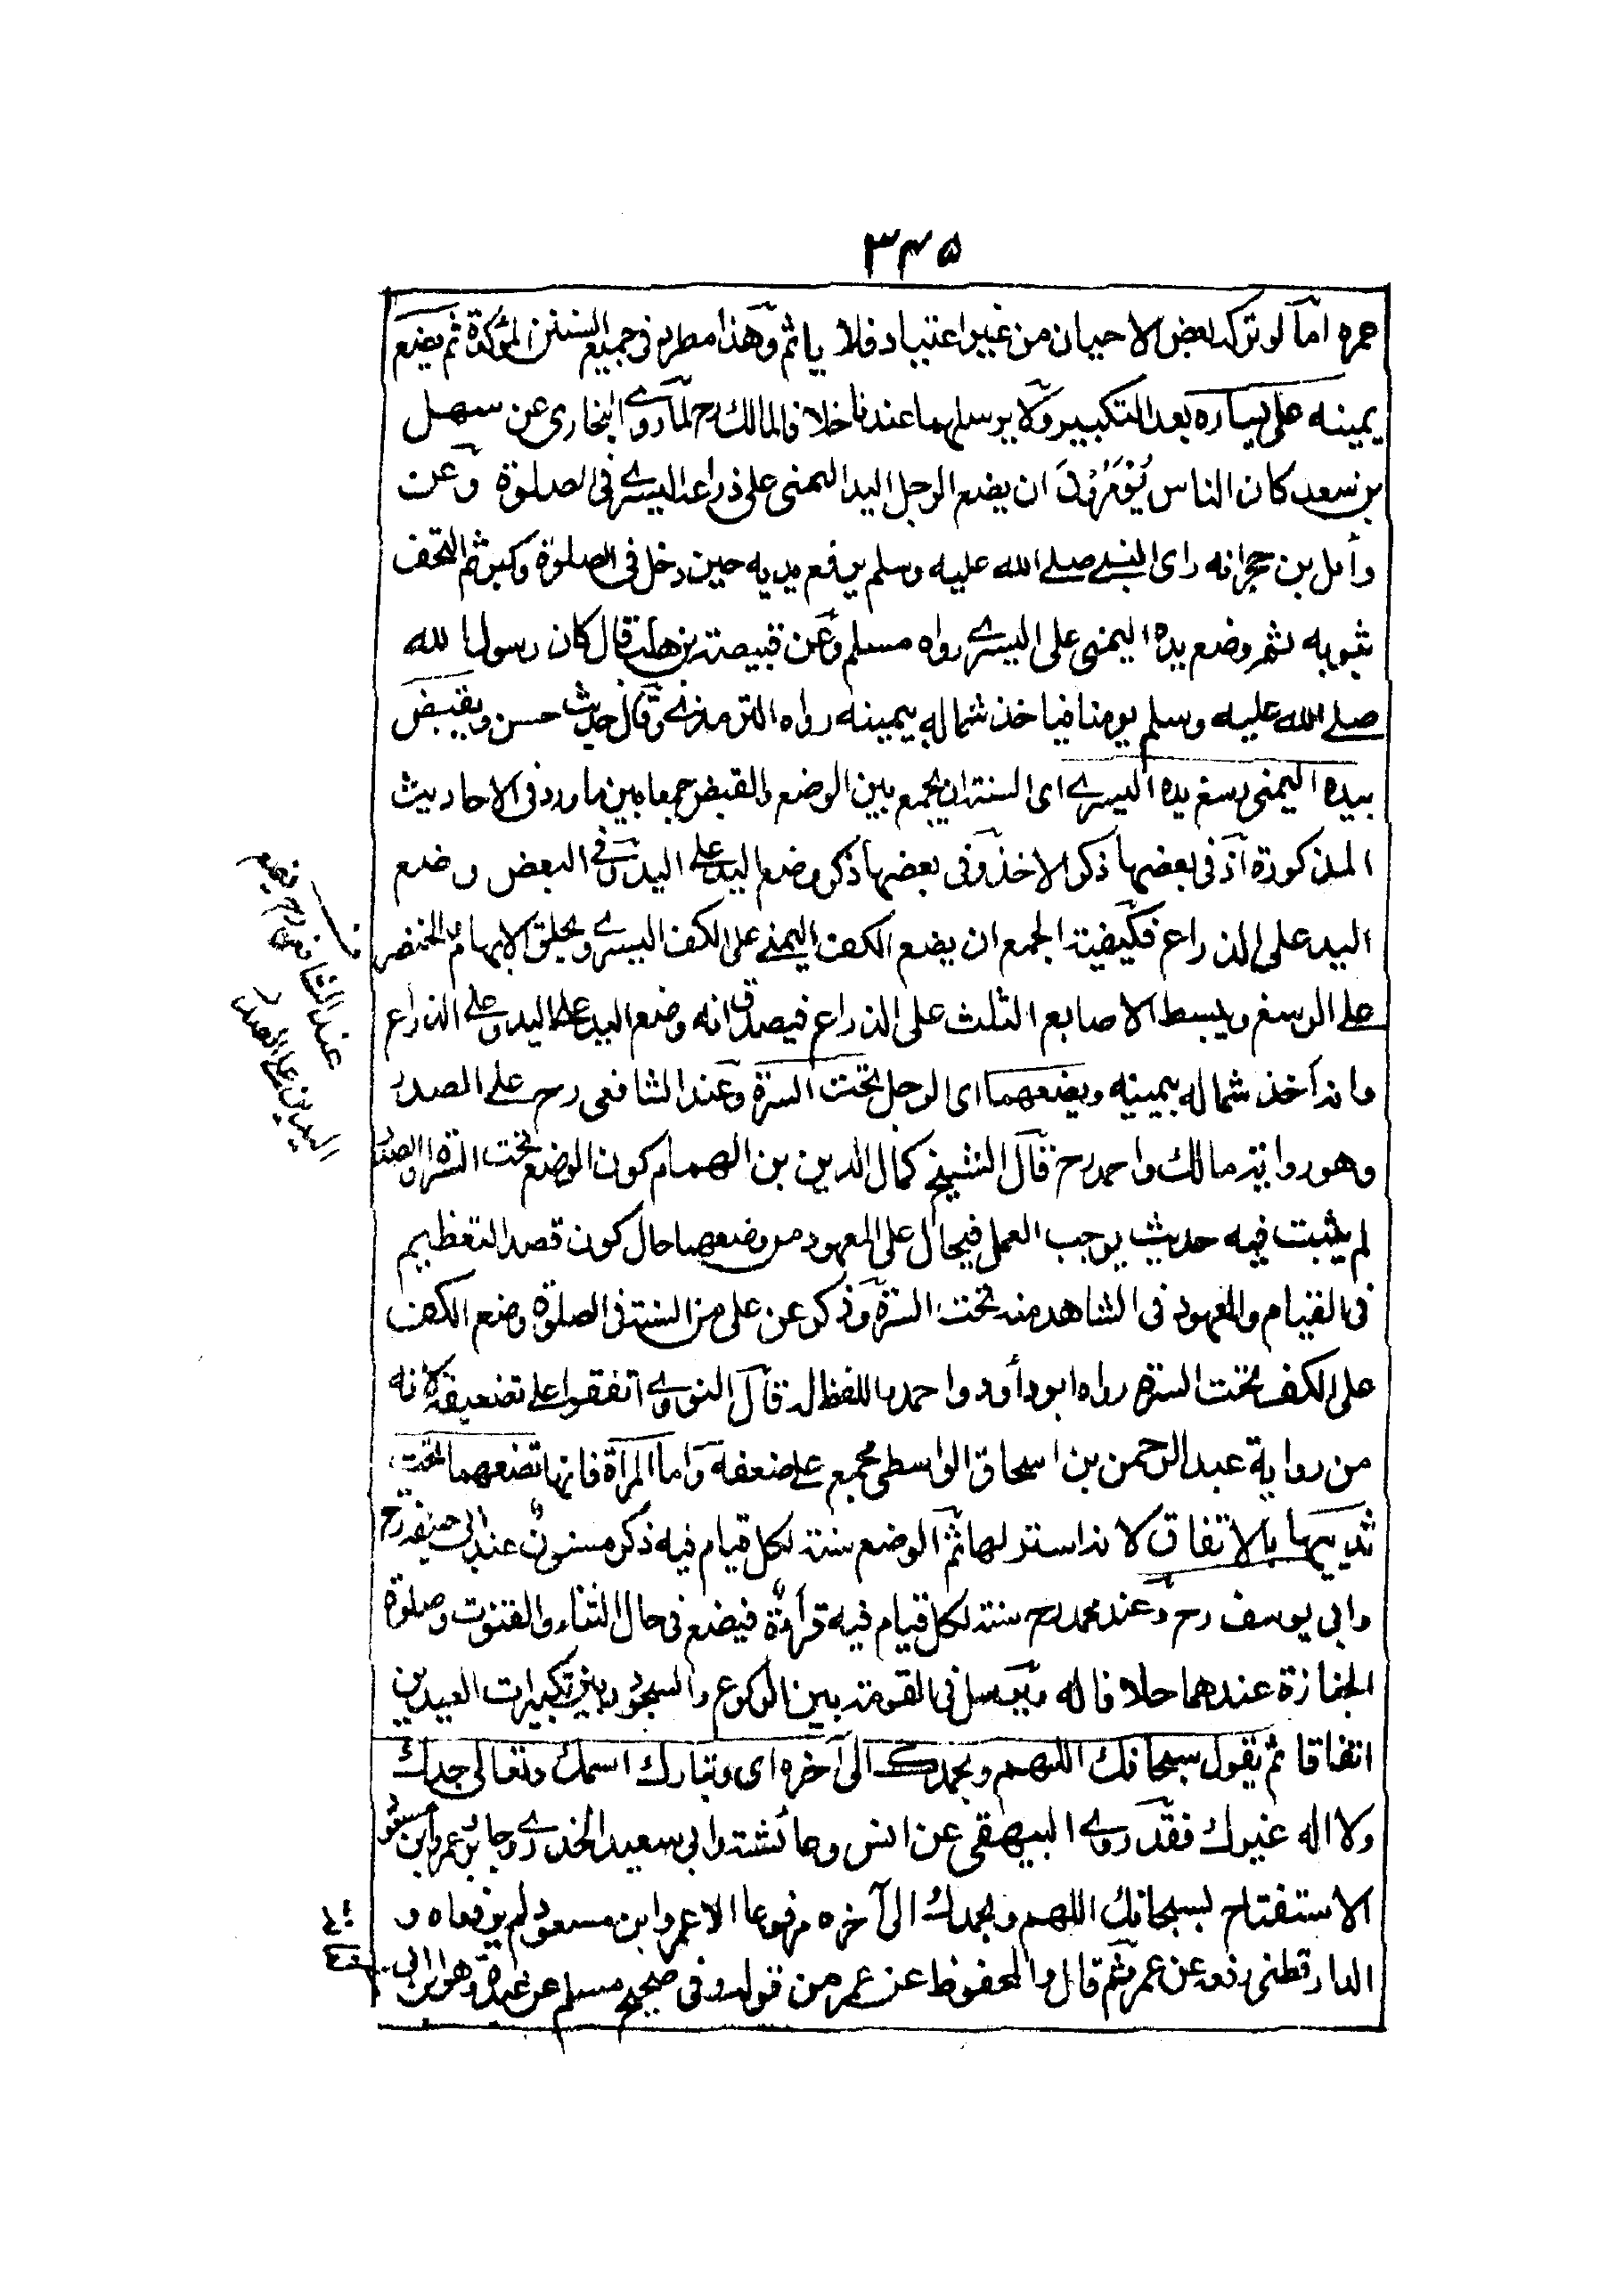 ۳۴۵
عمره اما لو ترك بعض الاحيان من غير اعتياد فلا ياثم وهذا مطرد في جميع السنن المؤكدة ثم يضع
يمينه على يساره بعد التكبير ولا يرسلهما عندنا خلافا لمالك رح لما روى البخارى عن سهل
بن سعد كان الناس يُؤمَرُونَ ان يضع الرجل اليد اليمنى على ذراعه اليسرى فى الصلوة وعن
وائل بن حجر انه راى النبى صلى الله عليه وسلم يرفع يديه حين دخل فى الصلوة وكبر ثم التحف
بثوبه ثم وضع يده اليمنى على اليسرى رواه مسلم وعن قبيصة بن هلب قال كان رسول الله
صلى الله عليه وسلم يومنا فياخذ شماله بيمينه رواه الترمذى وقال حديث حسن ويقبض
بيده اليمنى رسغ يده اليسرى اى السنة ان يجمع بين الوضع والقبض جمعا بين ما ورد فى الاحاديث
المذكورة اذ فى بعضها ذكر الاخذ وفى بعضها ذكر وضع اليد على اليد وفى البعض وضع
اليد على الذراع فكيفية الجمع ان يضع الكف اليمنى على الكف اليسرى ويحلق الابهام والخنصر
على الرسغ ويبسط الاصابع الثلث على الذراع فيصدق انه وضع اليد على اليد وعلى الذراع
وانه اخذ شماله بيمينه ويضعهما اى الرجل تحت السرة وعند الشافعى رح على الصدر
وهو رواية مالك واحمد رح قال الشيخ كمال الدين بن الهمام كون الوضع تحت السرة او الصدر
لم يثبت فيه حديث يوجب العمل فيحال على المعهود من وضعهما حال كون قصد التعظيم
فى القيام والمعهود فى الشاهد منه تحت السرة وذكر عن على من السنة فى الصلوة وضع الكف
على الكف تحت السرة رواه ابوداود واحمد باللفظ له قال النووى اتفقوا على تضعيفه لانه
من رواية عبد الرحمن بن اسحاق الواسطى مجمع على ضعفه واما المراة فانها تضعهما تحت
ثدييها بالاتفاق لانه استر لها ثم الوضع سنة لكل قيام فيه ذكر مسنون عند ابى حنيفة رح
وابى يوسف رح وعند محمد رح سنة لكل قيام فيه قراءة فيضع فى حال الثناء والقنوت وصلوة
الجنازة عندهما خلافا له ويرسل فى القومة بين الركوع والسجود وبين تكبيرات العيدين
اتفاقا ثم يقول سبحانك اللهم وبحمدك الى آخره اى وتبارك اسمك وتعالى جدك
ولا اله غيرك فقد روى البيهقى عن انس وعائشة وابى سعيد الخدرى وجابر وعمر وابن مسعود
الاستفتاح بسبحانك اللهم وبحمدك الى آخره مرفوعا الا عمر وابن مسعود لم يرفعاه و
الدارقطنى رفعه عن عمر ثم قال والمحفوظ عن عمر من قوله وفى صحيح مسلم عن عبدة وهو ابن ابى
عند الشافعى رح يضع
اليدين على الصدر